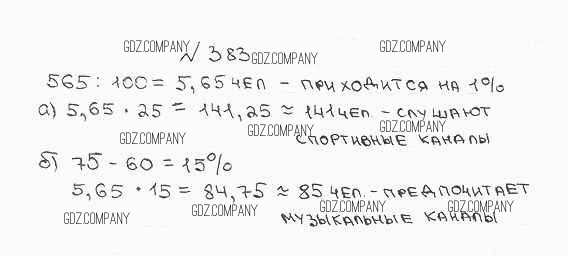 GDZ.COMPANY GDZ.COMPANY
N 383 GDZ.COMPANY
565 : 100 = 5,65 чел – приходится на 1%
а) 5,65 · 25 = 141,25 ≈ 141 чел. – слушают
GDZ.COMPANY GDZ.COMPANY GDZ.COMPANY
спортивные каналы
б) 75 – 60 = 15%
5,65 · 15 = 84,75 ≈ 85 чел. – предпочитает
GDZ.COMPANY GDZ.COMPANY GDZ.COMPANY GDZ.COMPANY
музыкальные каналы